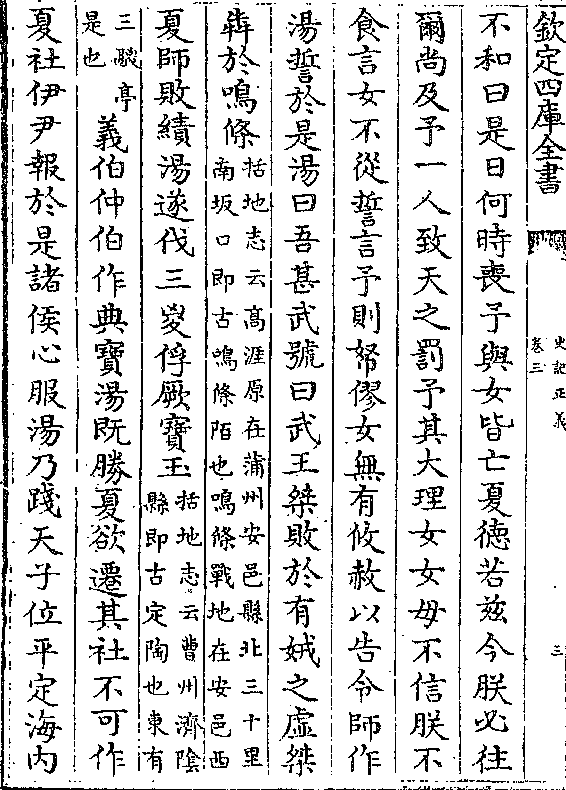 欽定四庫全書
史記正義
卷三
三
不和曰是日何時喪予與女皆亡夏德若兹今朕必往
爾尚及予一人致天之罰予其大理女女毋不信朕不
食言女不從誓言予則帑僇女無有攸赦以告令師作
湯誓於是湯曰吾甚武號曰武王桀敗於有娀之虛桀
犇於鳴條
括地志云高涯原在蒲州安邑縣北三十里
南坂口即古鳴條陌也鳴條戰地在安邑西
夏師敗績湯遂伐三㚇俘厥寶玉
括地志云曹州濟隂
縣即古定陶也東有
三鬷亭
是也
義伯仲伯作典寶湯既勝夏欲遷其社不可作
夏社伊尹報於是諸侯心服湯乃踐天子位平定海内